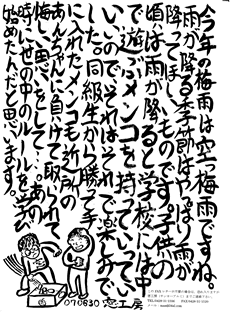 今年の梅雨は空梅雨ですね。
雨が降る季節はやっぱり雨が
降ってほしいものです。子供の
頃は雨が降ると学校には中
で遊ぶメンコを持っていってい
いいのでそれはそれで楽しみで
した。同級生から勝って手
に入れたメンコも近所の
あんちゃんに負けて取られて
悔しい思いをして…。あの
時に世の中のルールを学び
始めたんだと思います。
070830 窓工房